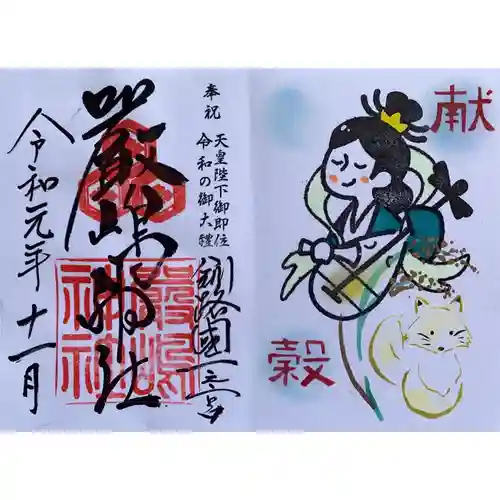 献
穀
奉祝
天皇陛下御即位
令和の御大禮
釧路國一之宮
嚴嶋神社
嚴嶋
神社
令和元年十一月